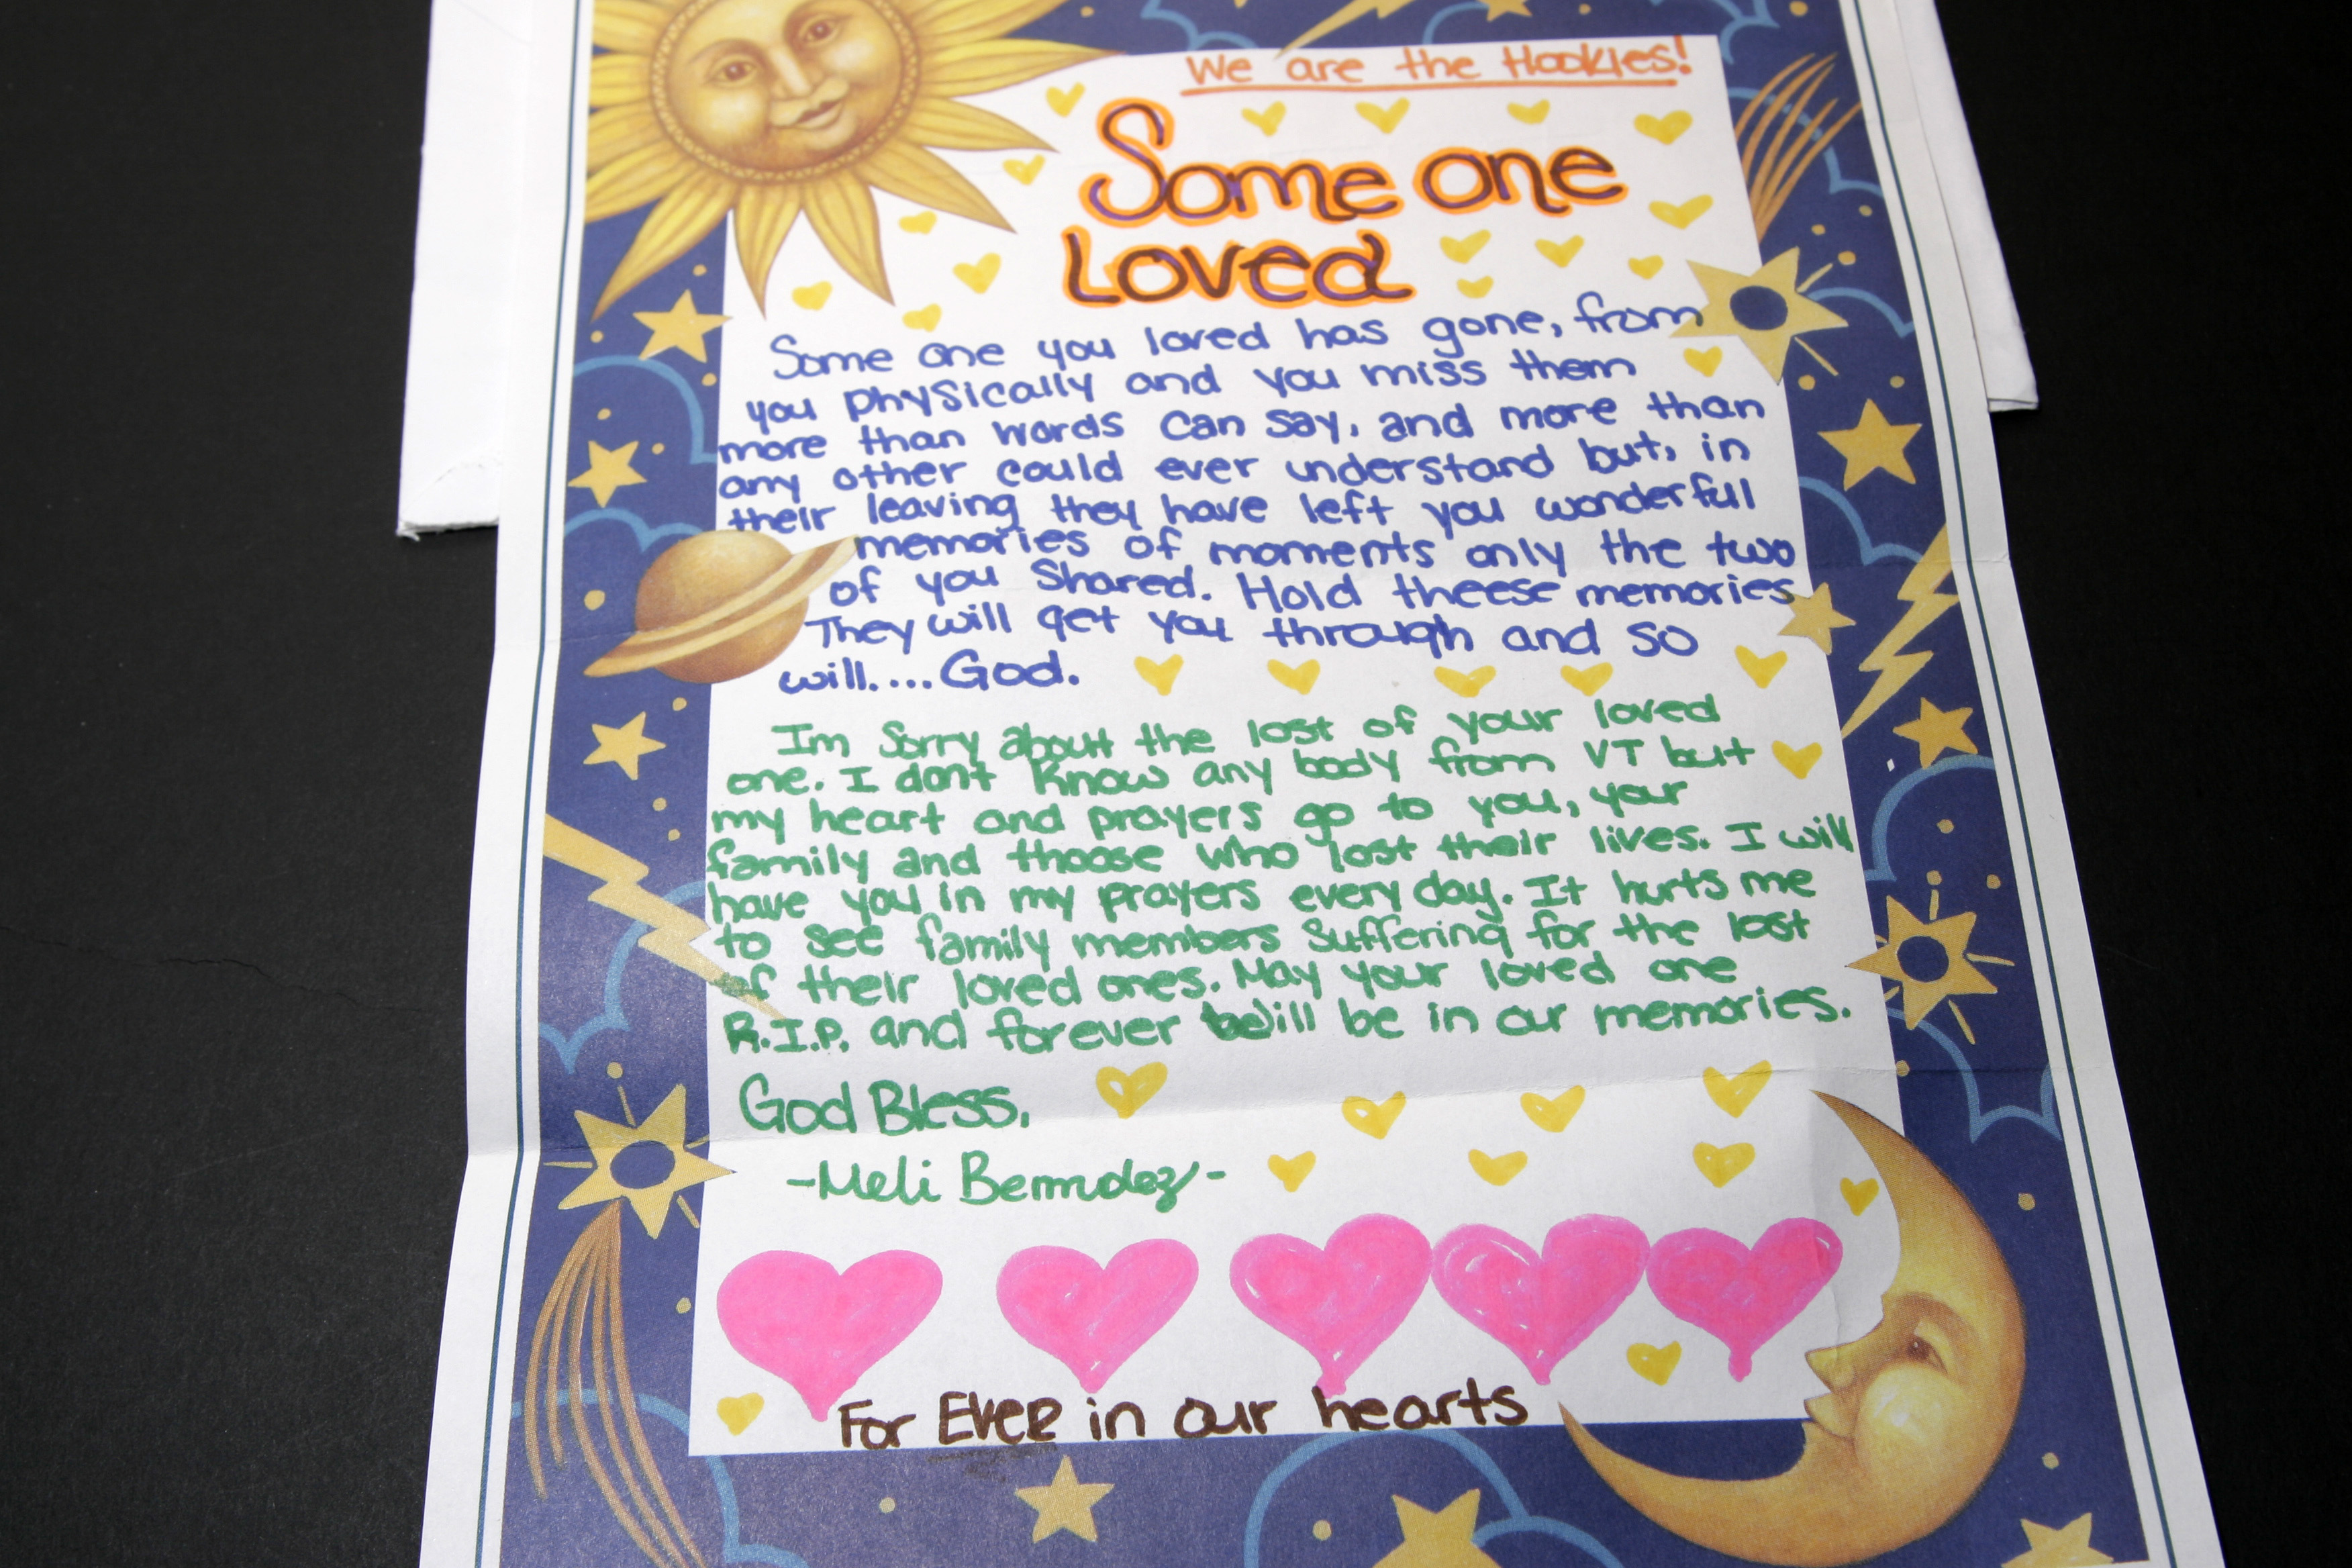 We are the Hookies!
Some one
Loved
Some one you loved has gone, from
you physically and you miss them
more than words can say, and more than
any other could ever understand but, in
their leaving they have left you wonderfull
memories of moments only the two
of you Shared. Hold theese memories
They will get you through and so
will....God.
Im Sorry about the lost of your loved
one. I dont know any body from VT but
my heart and prayers go to you, your
family and thoose who lost their lives. I will
have you in my prayers every day. It hurts me
to see family members suffering for the lost
of their loved ones. May your loved one
R.I.P. and forever will be in our memories.
God Bless,
-Meli Bermudez-
For Ever in our hearts